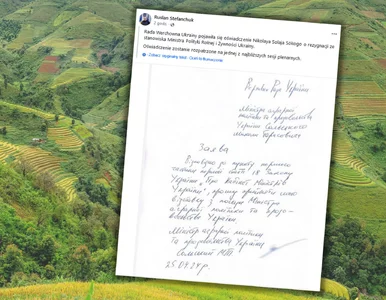 Ruslan Stefanchuk
2 godz. ·
Rada Werchowna Ukrainy pojawiła się oświadczenie Nikołaja Solsego o rezygnacji ze
stanowiska Ministra Polityki Rolnej i Żywności Ukrainy.
Oświadczenie zostanie rozpatrzone na jednej z najbliższych sesji plenarnych.
Zobacz oryginalny tekst · Oceń to tłumaczenie
Верховна Рада України
Міністра аграрної
політики та продовольства
України Сольського
Миколи Тарасовича
Заява
Відповідно до пункту першого
частини першої статті 18 Закону
України „Про Кабінет Міністрів
України", прошу прийняти мою
відставку з посади Міністра
аграрної політики та продо-
вольства України.
Міністр аграрної політики
та продовольства України
Сольський М.Т.
25.04.24 р.